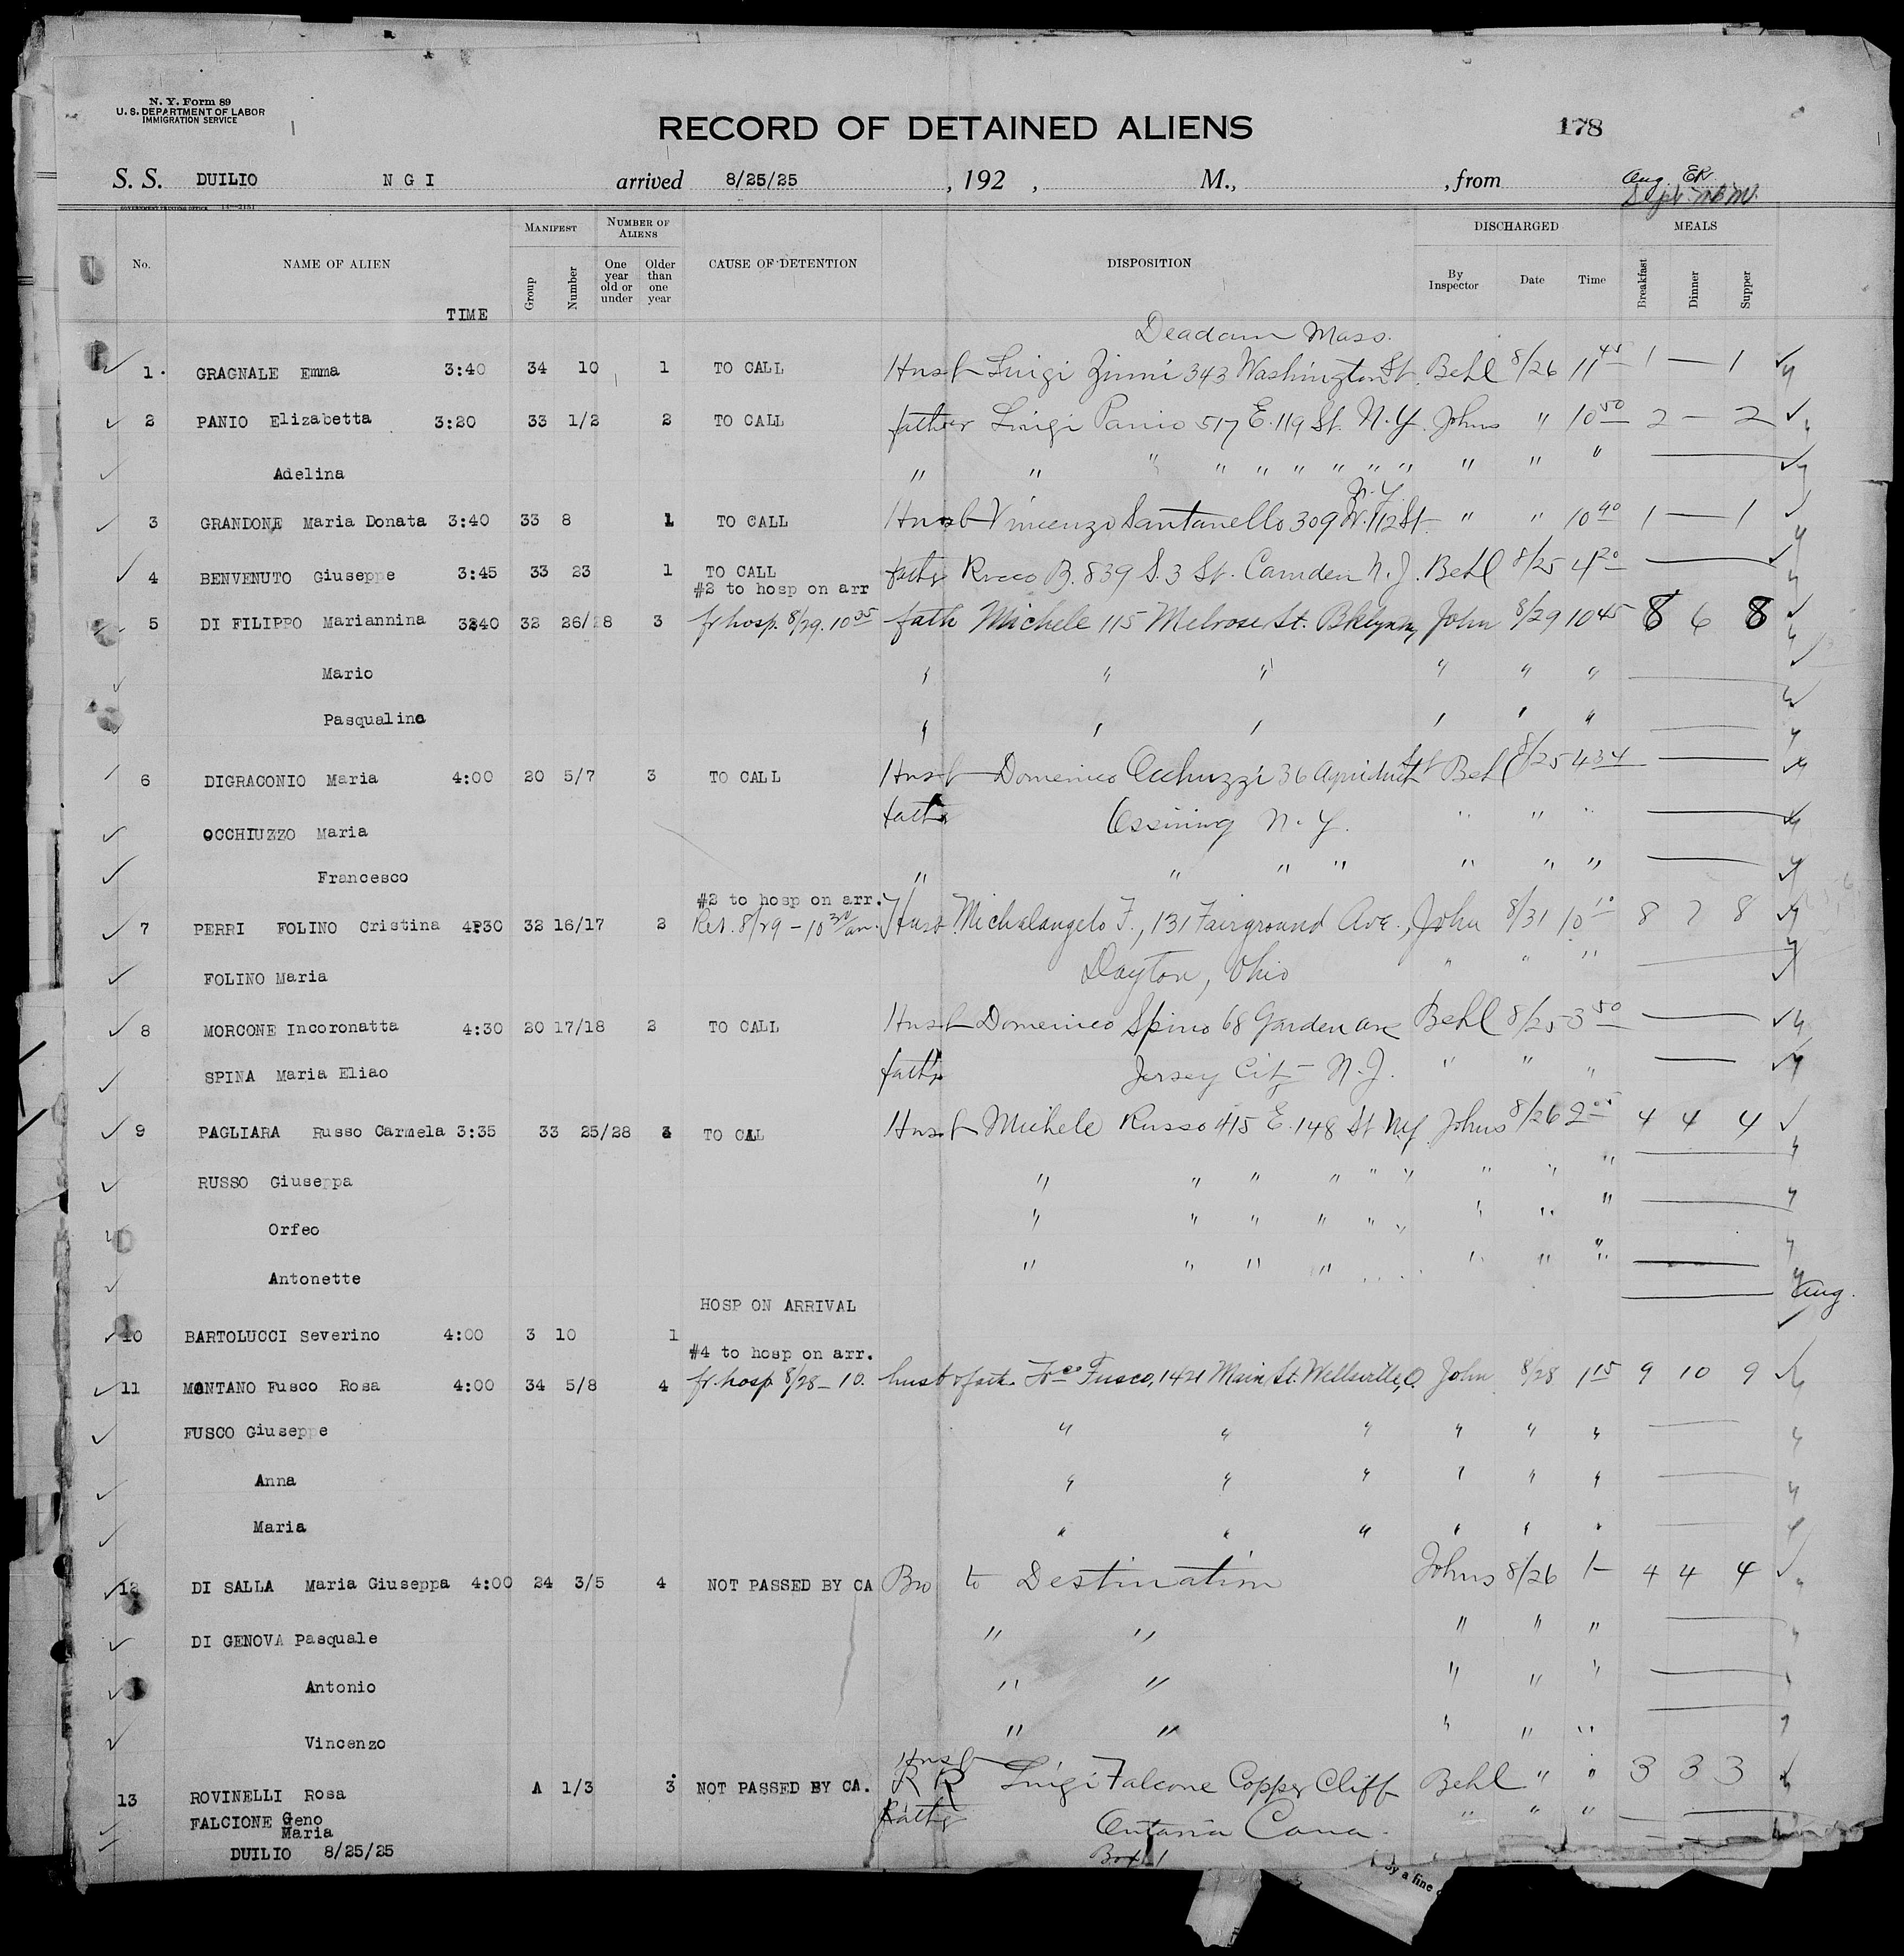 N. Y. Form 89
U. S. DEPARTMENT OF LABOR
IMMIGRATION SERVICE
RECORD OF DETAINED ALIENS
178
S. S. DUILIO N G I arrived 8/25/25 , 192 , M., , from
Aug. EK
Sept.
GOVERNMENT PRINTING OFFICE
No. NAME OF ALIEN TIME MANIFEST Group Number NUMBER OF ALIENS One year old or under Older than one year CAUSE OF DETENTION DISPOSITION DISCHARGED By Inspector Date Time MEALS Breakfast Dinner Supper
Deadam Mass.
1. GRAGNALE Emma 3:40 34 10 1 TO CALL Husb Luigi Zinni 343 Washington St. Behl 8/26 11 45 1 — 1
2 PANIO Elizabetta 3:20 33 1/2 2 TO CALL father Luigi Panio 517 E. 119 St. N.Y. Johns " 10 50 2 — 2
Adelina " " " " " " " " " " " "
N.Y.
3 GRANDONE Maria Donata 3:40 33 8 1 TO CALL Husb Vincenzo Santanello 309 W. 112 St " " 10 40 1 — 1
4 BENVENUTO Giuseppe 3:45 33 23 1 TO CALL father Rocco B. 839 S. 3 St. Camden N.J. Behl 8/25 4 20
#2 to hosp on arr
5 DI FILIPPO Mariannina 3:40 32 26/28 3 fr hosp. 8/29. 10 35 fath Michele 115 Melrose St. Bklyn Ny John 8/29 10 45 8 6 8
Mario " " " " " "
Pasqualino " " " " " "
6 DIGRACONIO Maria 4:00 20 5/7 3 TO CALL Husb Domenico Occhuzzi 36 Aqueduct St Behl 8/25 4 34
OCCHIUZZO Maria father Ossining N.Y. " " "
Francesco " " " " " " "
#2 to hosp on arr.
7 PERRI FOLINO Cristina 4:30 32 16/17 2 Ret. 8/29 - 10 30 am. Husb Michalangelo F., 131 Fairground Ave., John 8/31 10 10 8 7 8
FOLINO Maria Dayton, Ohio " " "
8 MORCONE Incoronatta 4:30 20 17/18 2 TO CALL Husb Domenico Spino 68 Garden ave Behl 8/25 3 50
SPINA Maria Eliao father Jersey City N.J. " " "
9 PAGLIARA Russo Carmela 3:35 33 25/28 TO CALL Husb Michele Russo 415 E. 148 St NY Johns 8/26 2 4 4 4
RUSSO Giuseppa " " " " " " " " "
Orfeo " " " " " " " " "
Antonette " " " " " " "
HOSP ON ARRIVAL Aug.
10 BARTOLUCCI Severino 4:00 3 10 1
#4 to hosp on arr.
11 MONTANO Fusco Rosa 4:00 34 5/8 4 fr. hosp 8/28 - 10. husb & fath Fco Fusco, 1421 Main St. Wellsville, O. John 8/28 1 15 9 10 9
FUSCO Giuseppe " " " " " "
Anna " " " " " "
Maria " " " " " "
12 DI SALLA Maria Giuseppa 4:00 24 3/5 4 NOT PASSED BY CA Bro to Destination Johns 8/26 1 — 4 4 4
DI GENOVA Pasquale " " " " "
Antonio " " " " "
Vincenzo " " " " "
Husb
13 ROVINELLI Rosa A 1/3 3 NOT PASSED BY CA. R R Luigi Falcone Copper Cliff Behl " " 3 3 3
FALCIONE Geno father Ontario Cana. " " "
Maria
DUILIO 8/25/25 Box 1
by a fine